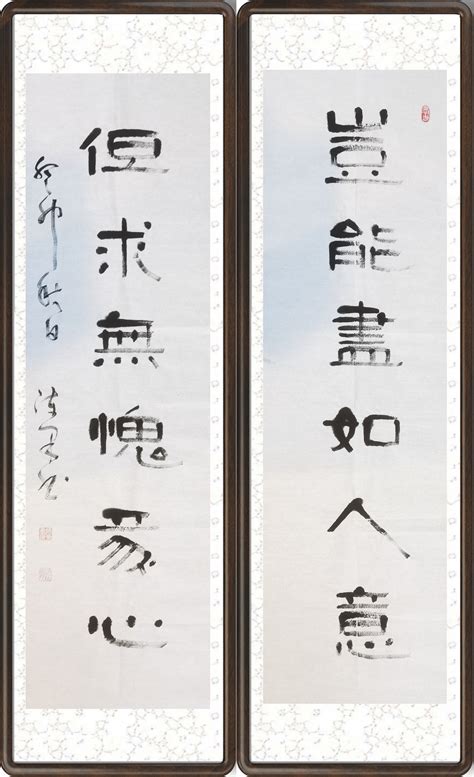 豈能盡如人意
但求無愧我心
癸卯秋日